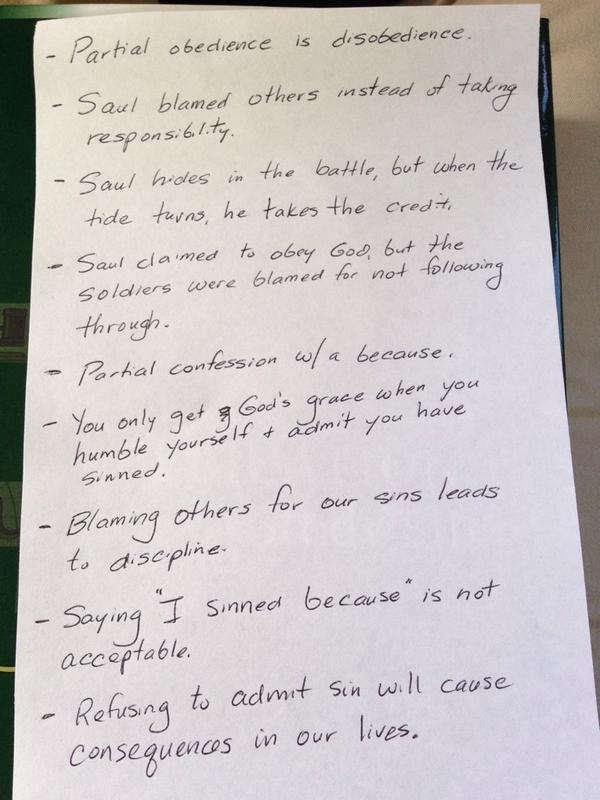 - Partial obedience is disobedience.
- Saul blamed others instead of taking
responsibility.
- Saul hides in the battle, but when the
tide turns, he takes the credit.
- Saul claimed to obey God, but the
soldiers were blamed for not following
through.
- Partial confession w/ a because.
- You only get God's grace when you
humble yourself + admit you have
sinned.
- Blaming others for our sins leads
to discipline.
- Saying "I sinned because" is not
acceptable.
- Refusing to admit sin will cause
consequences in our lives.